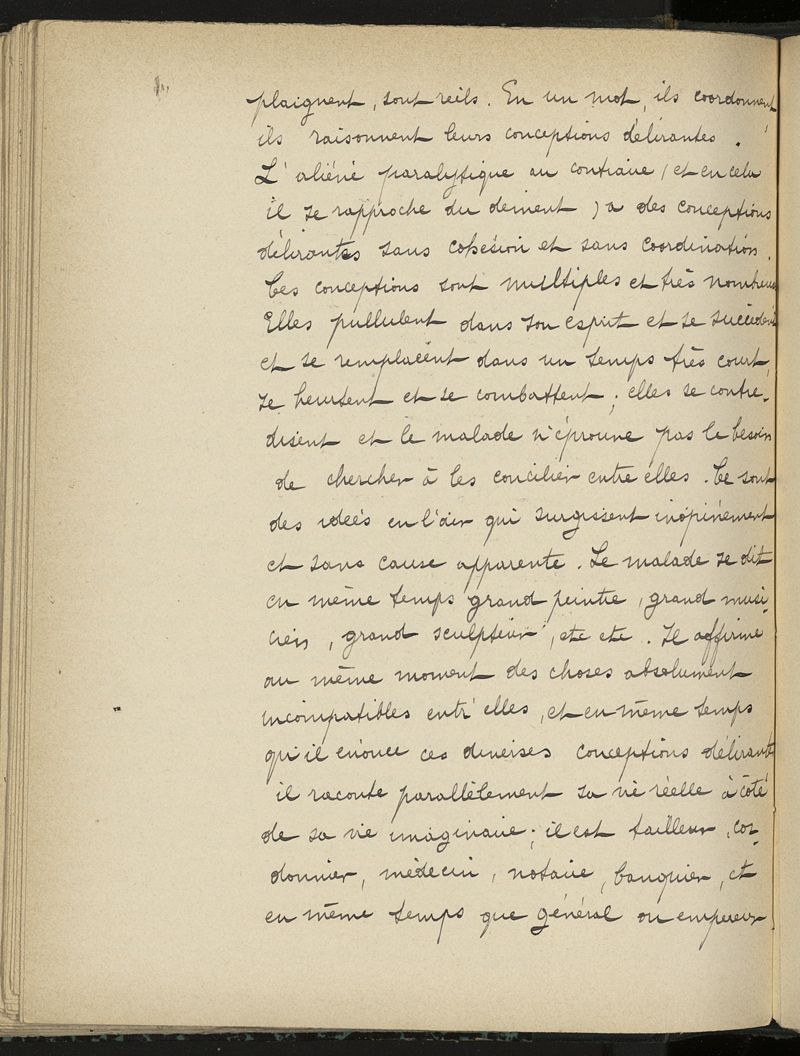 plaignent, sont réels. En un mot, ils coordonnent,
ils raisonnent leurs conceptions délirantes.
L'aliéné paralytique au contraire (et en cela
il se rapproche du dément) a des conceptions
délirantes sans cohésion et sans coordination.
Ces conceptions sont multiples et très nombreus
Elles pullulent dans son esprit et se succèdent
et se remplacent dans un temps très court,
se heurtent et se combattent ; elles se contre-
disent et le malade n'éprouve pas le besoin
de chercher à les concilier entre elles. Ce sont
des idées en l'air qui surgissent inopinément
et sans cause apparente. Le malade se dit
en même temps grand peintre, grand musi-
cien, grand sculpteur, etc etc. Il affirme
au même moment des choses absolument
incompatibles entr'elles, et en même temps
qu'il énonce ces diverses conceptions délirantes
il raconte parallèlement sa vie réelle à côté
de sa vie imaginaire ; il est tailleur, cor-
donnier, médecin, notaire, banquier, et
en même temps que général ou empereur